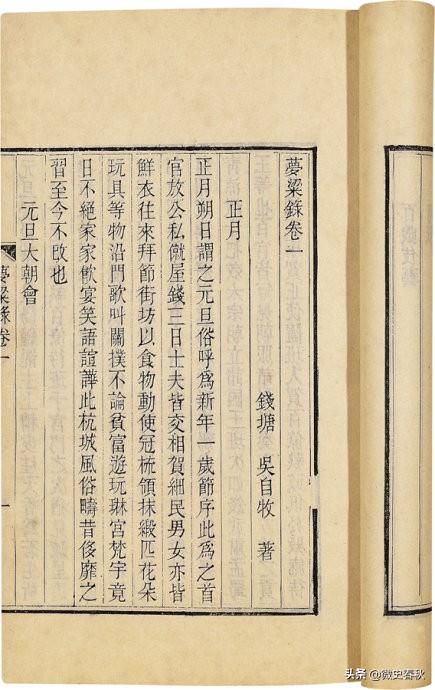 夢粱錄卷一
錢塘 吳自牧 著
正月
正月朔日謂之元旦俗呼爲新年一歲節序此爲之首
官放公私僦屋錢三日士夫皆交相賀細民男女亦皆
鮮衣往來拜節街坊以食物動使冠梳領抹緞匹花朵
玩具等物沿門歌叫關撲不論貧富遊玩琳宮梵宇竟
日不絕家家飲宴笑語諠譁此杭城風俗疇昔侈靡之
習至今不改也
元旦大朝會
夢粱錄卷一
一
头条 @微史春秋